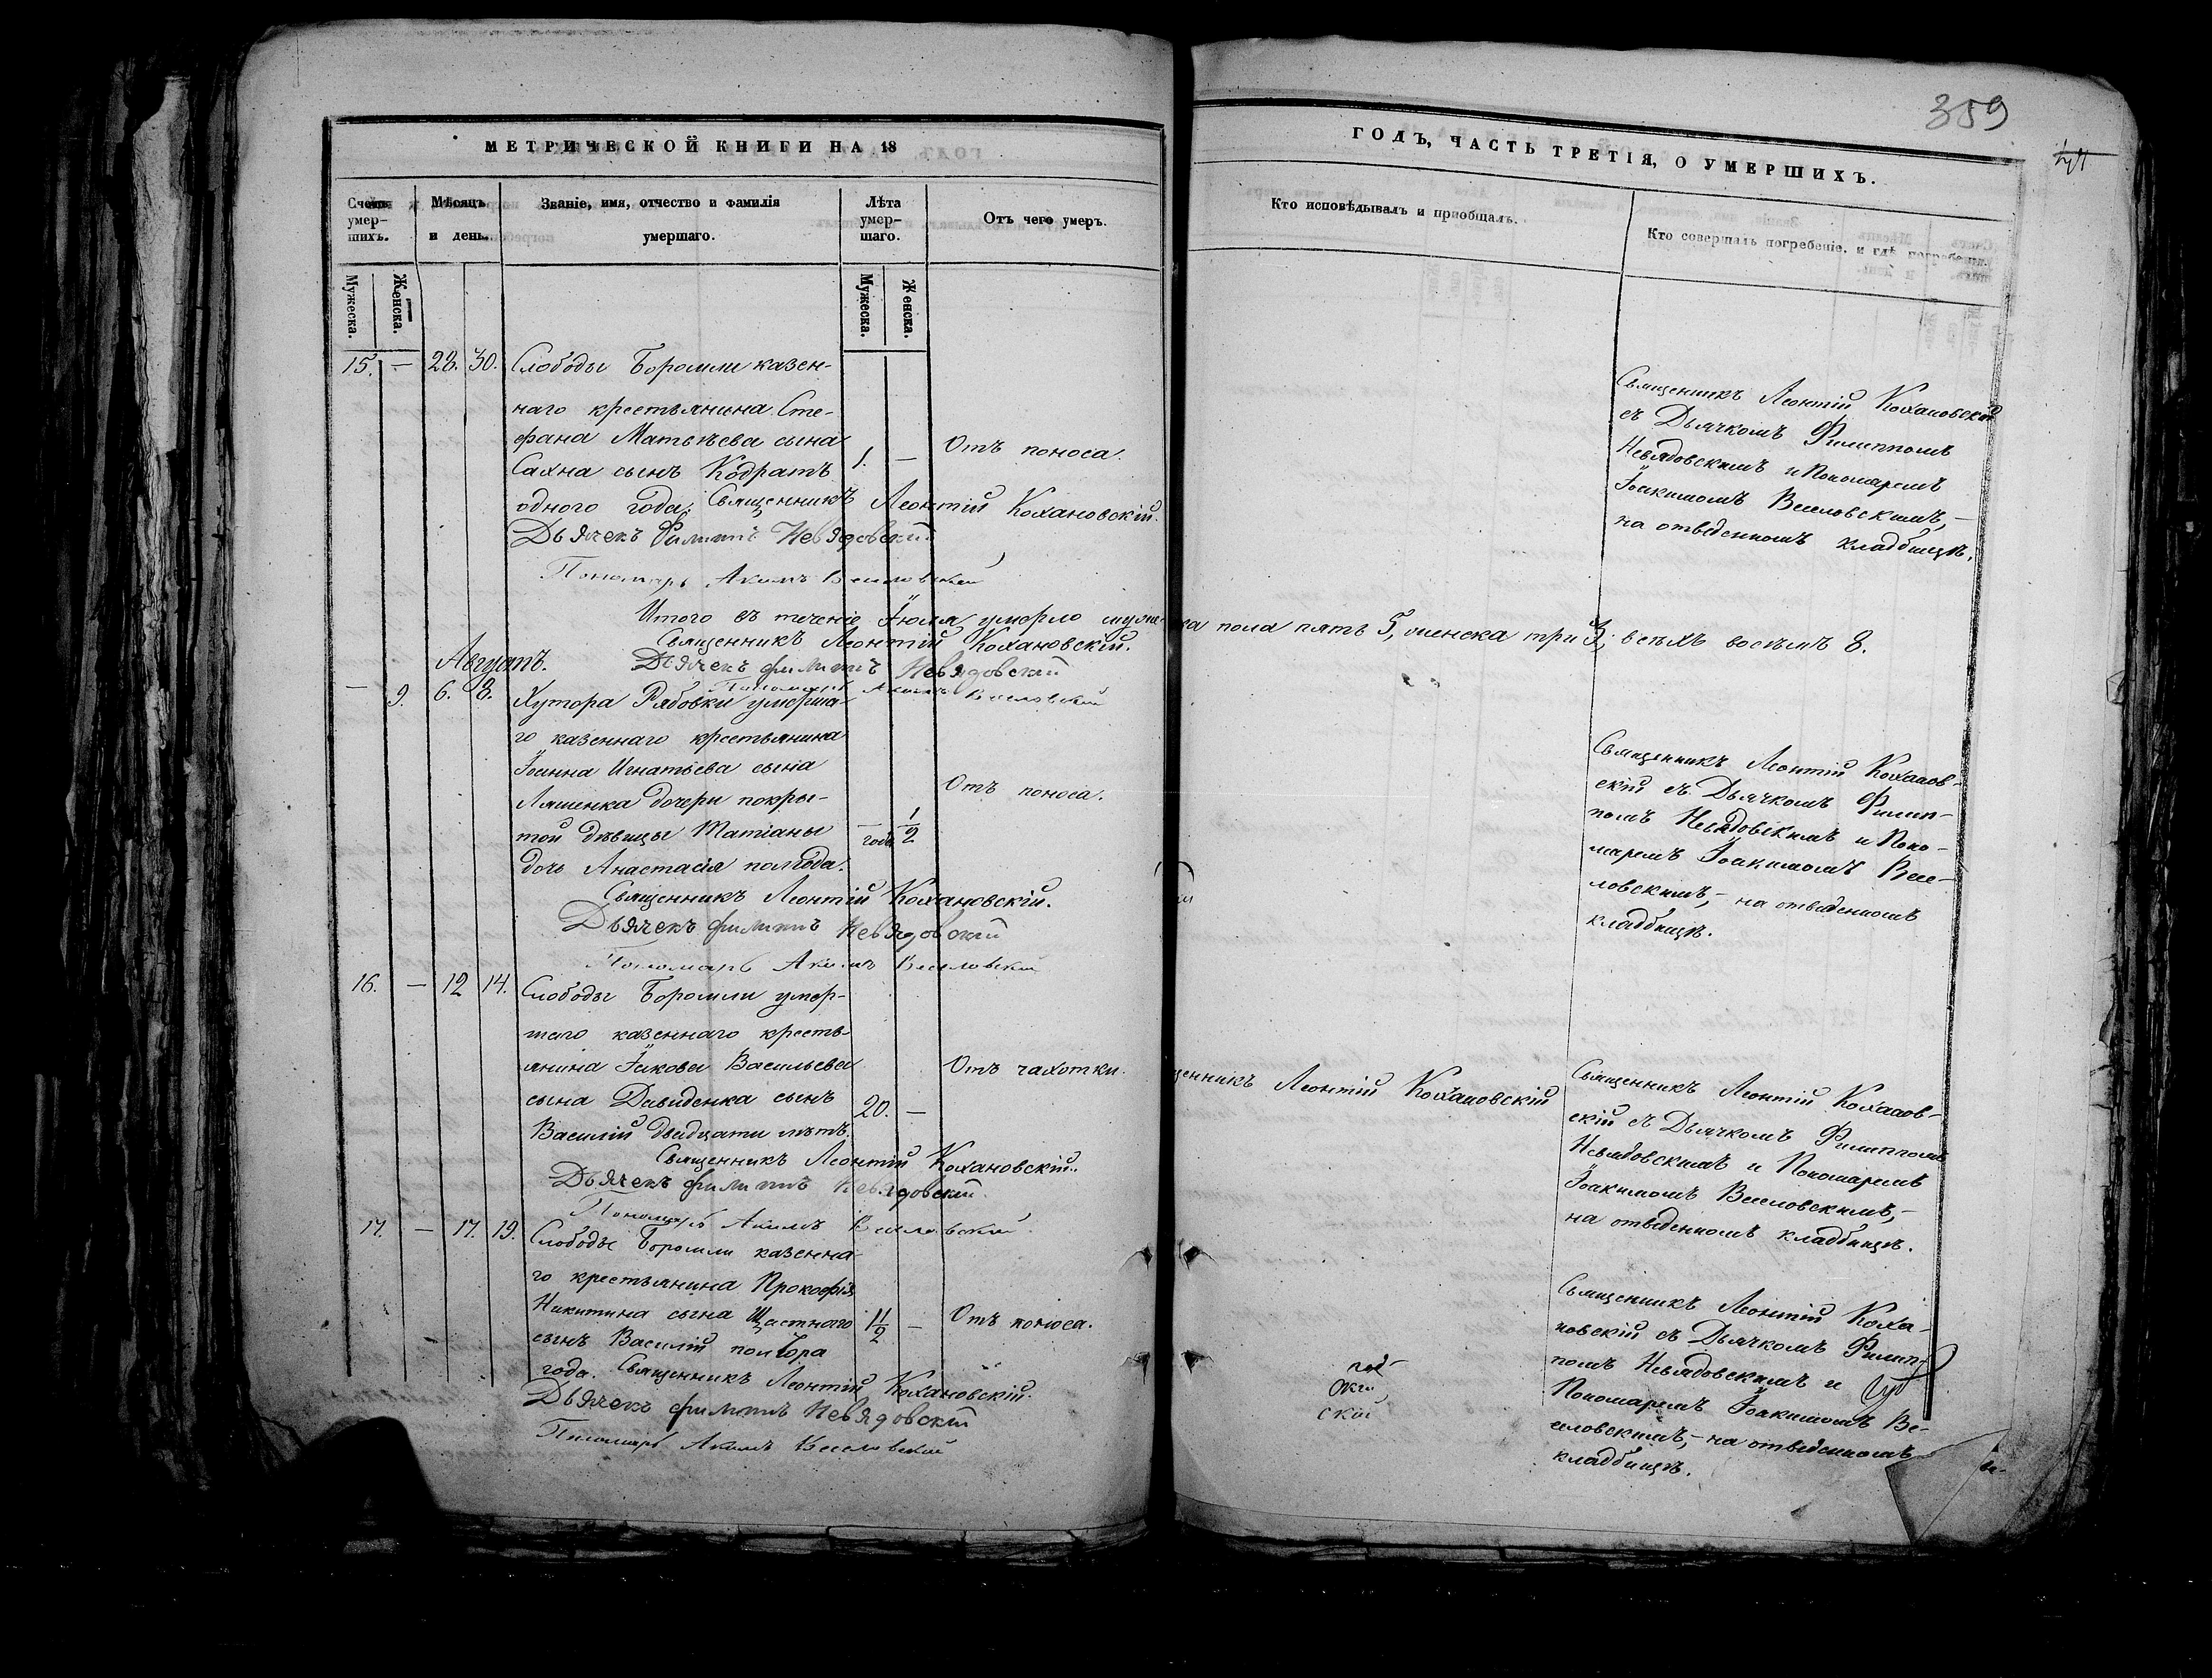 МЕТРИЧЕСКОЙ КНИГИ НА 18
Счетъ умер- шихъ.
Мѣсяцъ и день.
Званіе, имя, отчество и фамилія умершаго.
Лѣта умер- шаго.
Отъ чего умеръ.
Мужеска.
Женска.
Мужеска.
Женска.
15. — 28. 30. Слободы Боромли казен-
наго крестьянина Сте-
фана Матвѣева сына
Сахна сынъ Кодратъ
одного года.
1. — Отъ поноса.
Священникъ Леонтій Кохановскій.
Дьячекъ Филиппъ Невядовскій
Пономарь Акимъ Веселовскій
Итого въ теченіе Іюля умерло муже-
ска пола пять 5, женска три 3, всѣхъ восемь 8.
Священникъ Леонтій Кохановскій.
Августъ.
Дьячекъ Филиппъ Невядовскій
Пономарь Акимъ Веселовскій
— 9. 6. 8. Хутора Рябовки умерша-
го казеннаго крестьянина
Іоанна Игнатьева сына
Ляшенка дочери покры-
той дѣвицы Татіаны
дочь Анастасія полгода.
— 1/2 год. Отъ поноса.
Священникъ Леонтій Кохановскій.
Дьячекъ Филиппъ Невядовскій
Пономарь Акимъ Веселовскій
16. — 12 14. Слободы Боромли умер-
шаго казеннаго кресть-
янина Іакова Васильева
сына Давиденка сынъ
Василій двадцати лѣтъ.
20. — Отъ чахотки.
Священникъ Леонтій Кохановскій.
Дьячекъ Филиппъ Невядовскій.
Пономарь Акимъ Веселовскій
17. — 17. 19. Слободы Боромли казенна-
го крестьянина Прокофія
Никитина сына Щастнаго
сынъ Василій полтора
года.
1 1/2 — Отъ поноса.
Священникъ Леонтій Кохановскій.
Дьячекъ Филиппъ Невядовскій
Пономарь Акимъ Веселовскій
359
ГОДЪ, ЧАСТЬ ТРЕТІЯ, О УМЕРШИХЪ.
Кто исповѣдывалъ и пріобщалъ.
Кто совершалъ погребеніе, и гдѣ погребены.
Священникъ Леонтій Кохановскій
съ Дьячкомъ Филиппомъ
Невядовскимъ и Пономаремъ
Іоакимомъ Веселовскимъ, —
на отведенномъ кладбищѣ.
Священникъ Леонтій Коханов-
скій съ Дьячкомъ Филип-
помъ Невядовскимъ и Поно-
маремъ Іоакимомъ Весе-
ловскимъ, — на отведенномъ
кладбищѣ.
щенникъ Леонтій Кохановскій
Священникъ Леонтій Коханов-
скій съ Дьячкомъ Филиппомъ
Невядовскимъ и Пономаремъ
Іоакимомъ Веселовскимъ, —
на отведенномъ кладбищѣ.
Священникъ Леонтій Коха-
новскій съ Дьячкомъ Филип-
помъ Невядовскимъ и
Пономаремъ Іоакимомъ Ве-
селовскимъ, — на отведенномъ
кладбищѣ.